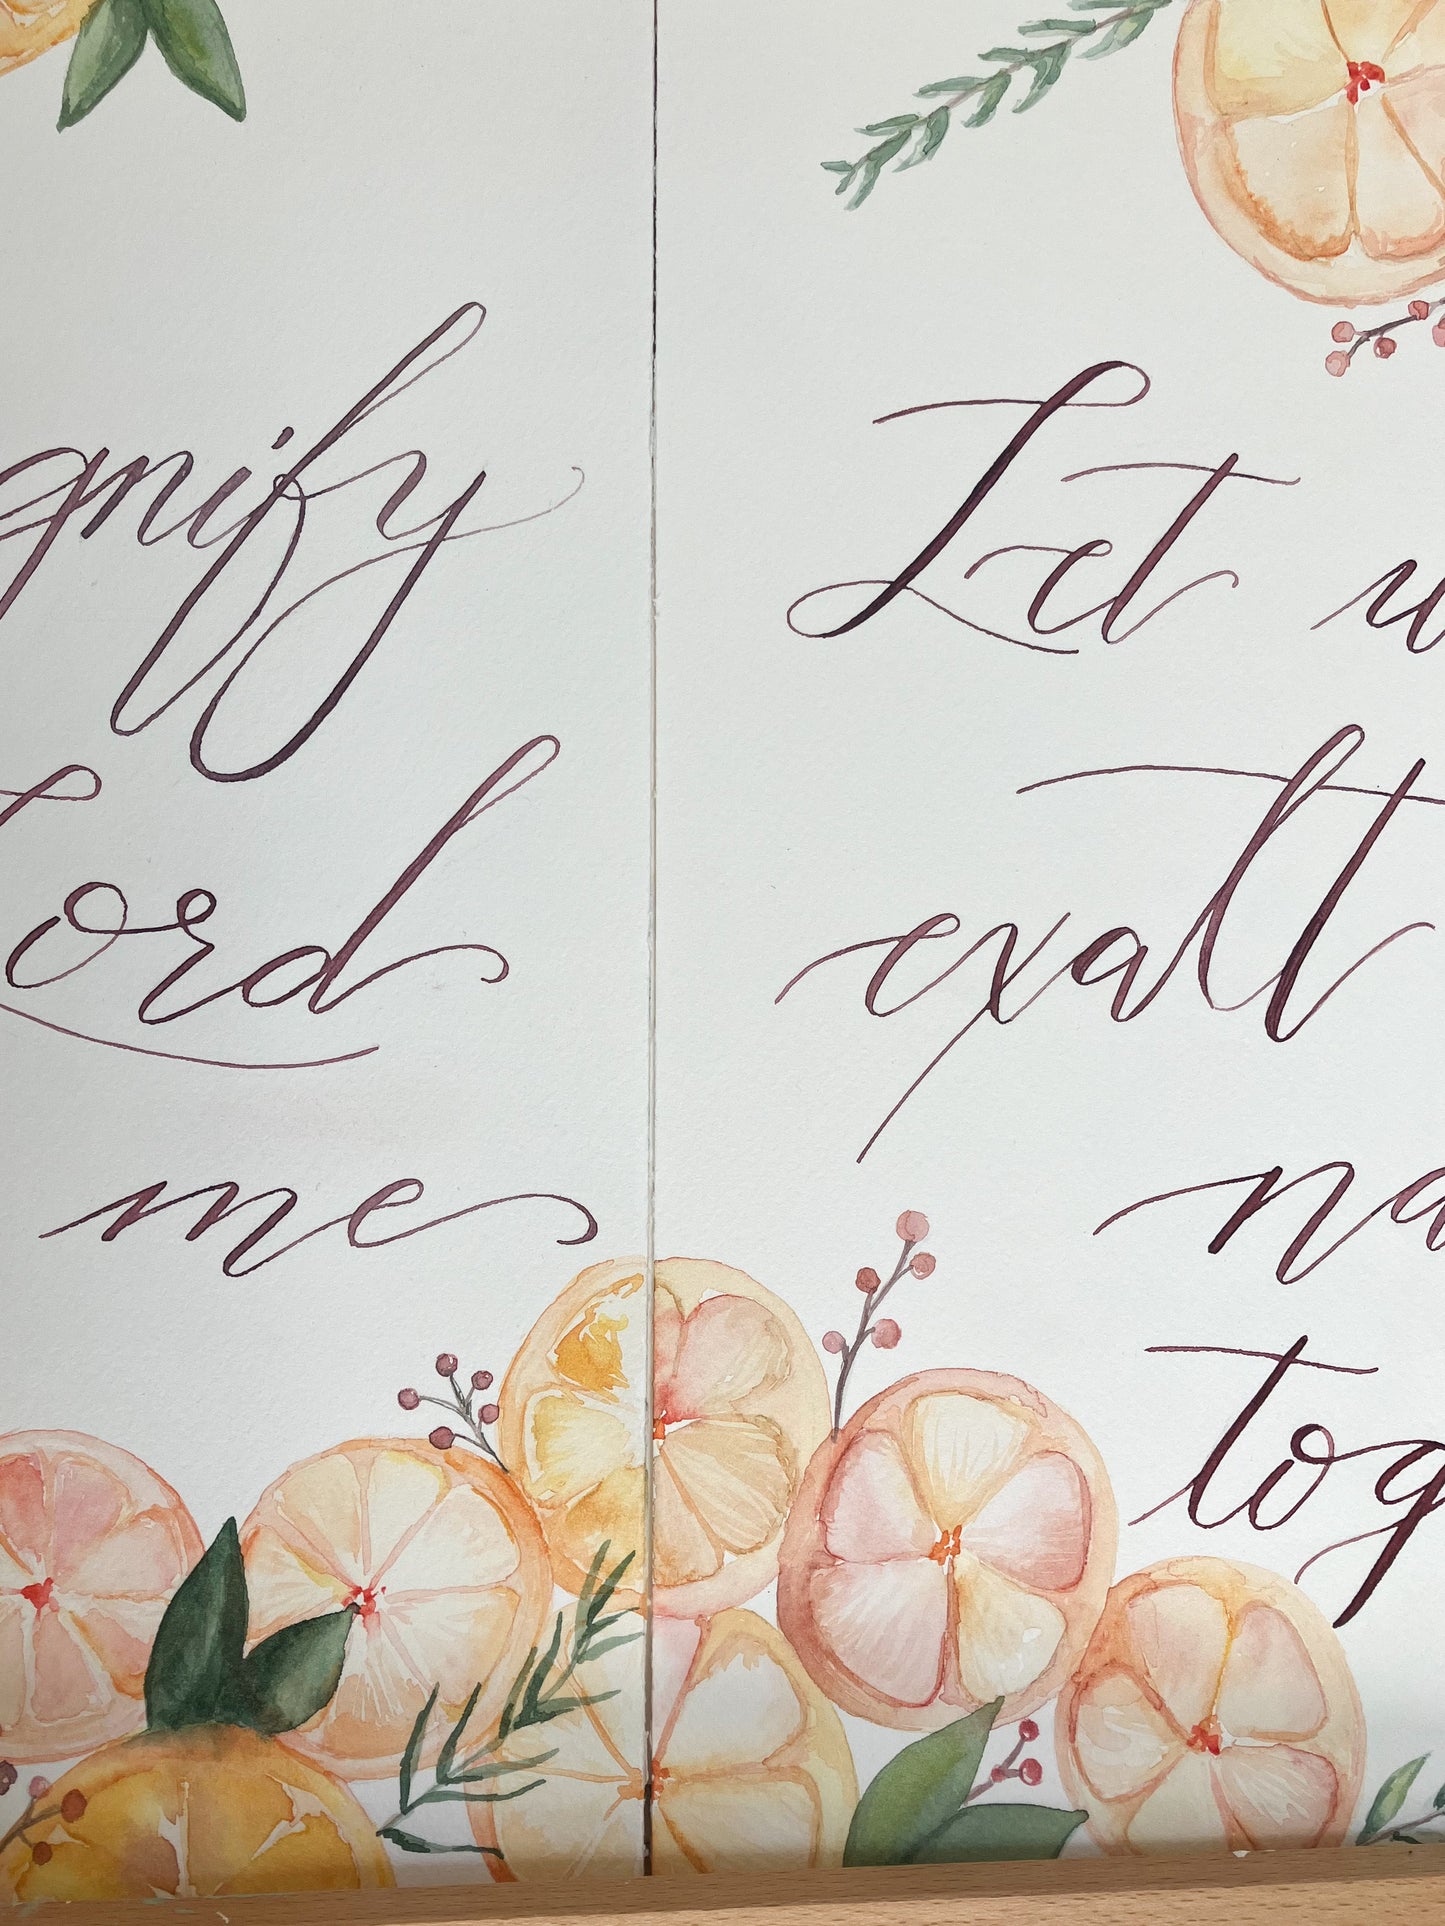 gnify
Lord
me
Let u
exalt
na
tog